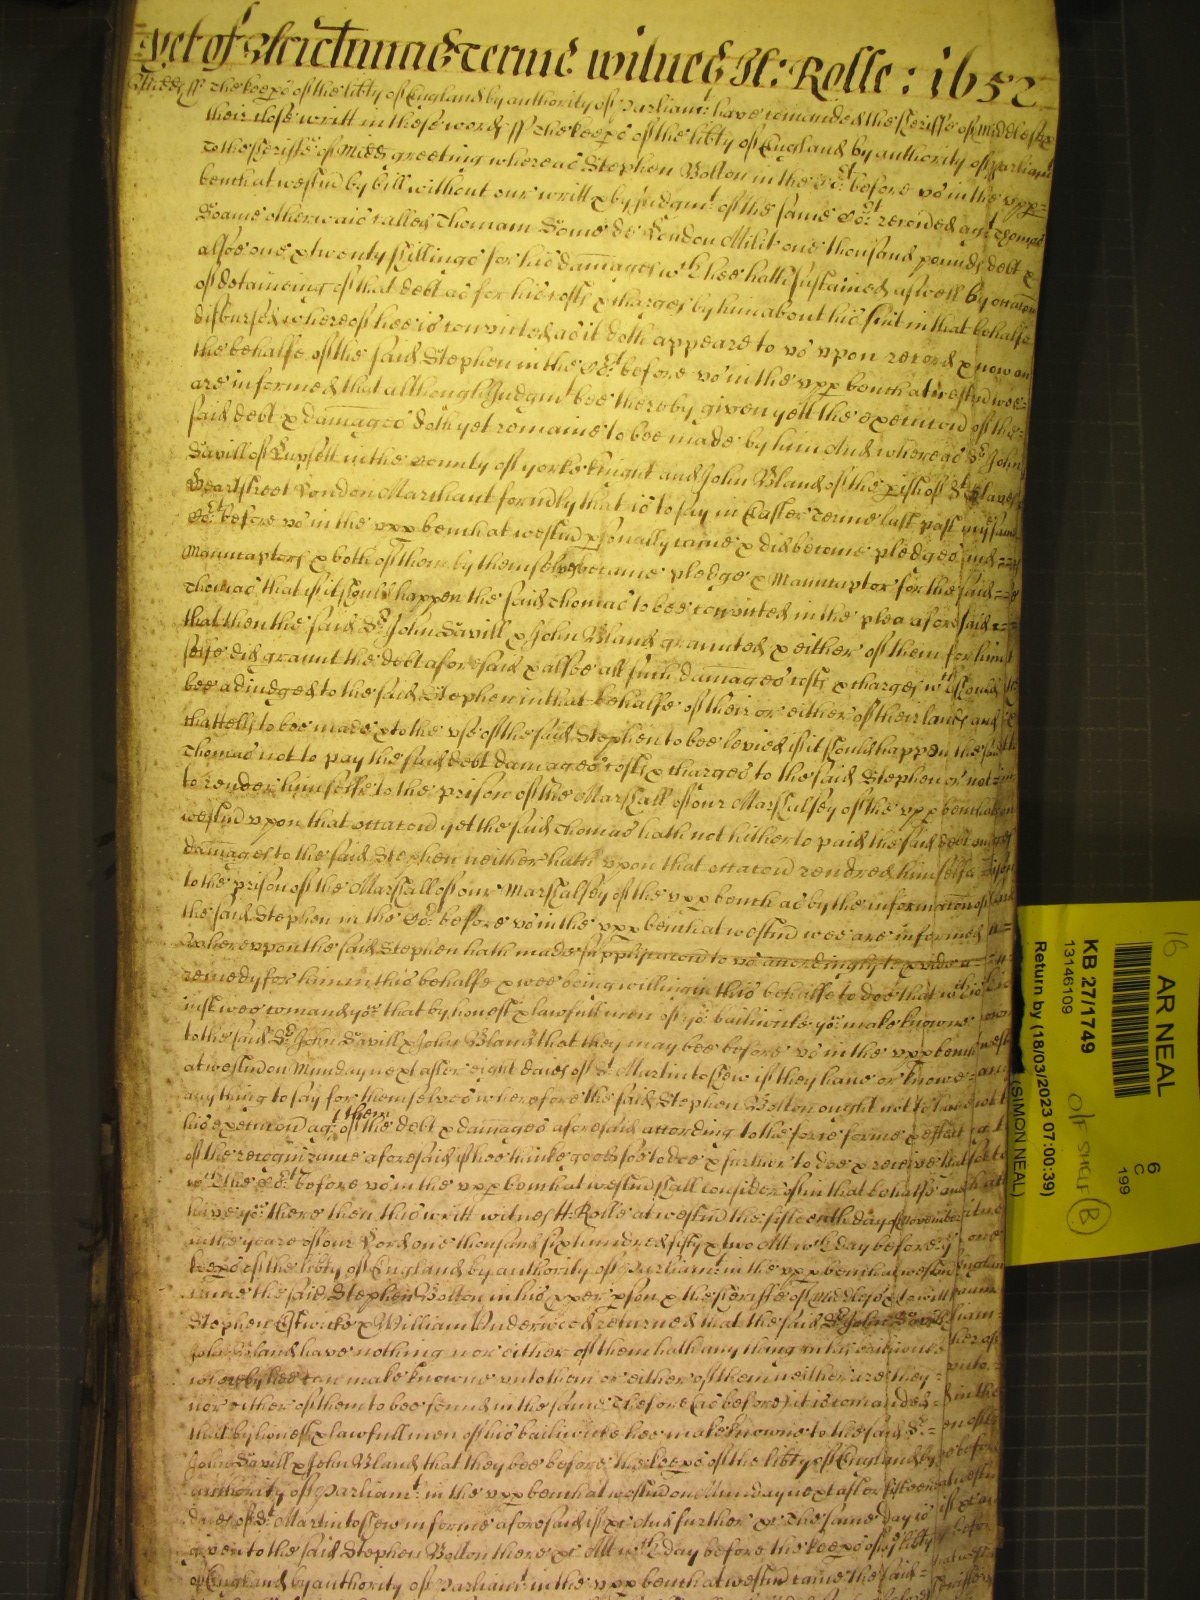 yet of St Michaell Terme witnes H: Rolle: 1652
Midds ss The keeps of the libty of England by authority of Parliamt: have comanded the sheriffe of Middlesex
their close writt in these words ss The keeps of the libty of England by authority of Parliamt
To the sheriffe of Midds greeting whereas Stephen Bolton in the Cort: before us in the upp
bench at westmr by bill without our writt & by Judgmt: of the same Cort: recoved agt Thomas
Soame otherwais called Thomam Some de London Milit one thousand pounds debt &
alsoe one & twenty shillings for his damages wch hee hath sustained aswell by occacon
of detaineing of that debt as for his costs & charges by him about his suit in that behalfe
disbursed whereof hee is convicted as it doth appeare to us upon record & now on
the behalfe of the said Stephen in the Cort: before us in the upp bench at westmr wee
are informed that although Judgmt bee thereby given yett the execucon of the
said debt & damages doth yet remaine to bee made by him And whereas Sr John
Savill of Lupsett in the County of yorke knight and John Bland of the pish of St Olaves
heartstreet London Marchant formerly that is to say in Easter Terme last past in the same
Cort: before us in the upp bench at westmr psonally came & did become pledges and
Manucaptors & both of them by themselves became pledge & Manucaptor for the said
Thomas that if it should happen the said Thomas to bee convicted in the plea aforesaid
that then the said Sr John Savill & John Bland graunted & either of them for himselfe
selfe did graunt the debt aforesaid & alsoe all such damages costs & charges wch should
bee adiudged to the said Stephen in that behalfe of their or either of their lands and
chattells to bee made & to the use of the said Stephen to bee levied if it should happen the said
Thomas not to pay the said debt damages costs & charges to the said Stephen or not
to render himselfe to the prison of the Marshall of our Marshalsey of the upp bench at
westmr upon that occacon yet the said Thomas hath not hitherto paid the said debt and
damages to the said Stephen neither hath upon that occacon rendred himselfe
to the prison of the Marshall of our Marshalsey of the upp bench as by the informacon of
the said Stephen in the Cort: before us in the upp bench at westmr wee are informed
Whereupon the said Stephen hath made supplicacon to us accordingly to pvide a
remedy for him in this behalfe & wee being willing in this behalfe to doe that wch is
iust wee comand you that by honest & lawfull men of yor: bailiwicke you make knowne
to the said Sr John Savill & John Bland that they may bee before us in the upp bench
at westmr on Munday next after eight daies of St Martin to shew if they have or knowe
any thing to say for themselves wherefore the said Stephen Bolton ought not to have
his execucon agt: them of the debt & damages aforesaid according to the force forme & effect
of the recognizance aforesaid if hee thinke good soe to doe & further to doe & receive that
wch the Cort: before us in the upp bench at westmr shall consider of in that behalfe and
have you there then this writt witnes H: Rolle at westmr the fifteenth day of November
in the yeare of our Lord one thousand six hundred fifty & two Att wch day before ye
keeps of the libty of England by authority of Parliamt: in the upp bench at westmr
came the said Stephen Bolton in his pper pson & the sheriffe of Midds
Stephen Estwicke & William Underwood returned that the said Sr John Savill
John Bland have nothing nor either of them hath any thing in his bailiwicke
whereby hee can make knowne unto them or either of them neither are they
nor either of them to bee found in the same Therefore as before it is comanded
that by honest & lawfull men of his bailiwicke hee make knowne to the said Sr
John Savill & John Bland that they bee before the keeps of the libty of England by
authority of Parliamt: in the upp bench at westmr on Munday next after fifteene
daies of St Martin to shew in forme aforesaid if &c And further &c The same day is
given to the said Stephen Bolton there &c Att wch day before the keeps of ye libty
of England by authority of Parliamt in the upp bench at westmr came the said
16
AR NEAL
KB 27/1749
13146109
Return by (18/03/2023 07:00:39)
(SIMON NEAL)
off SHELF
B
6
C
199